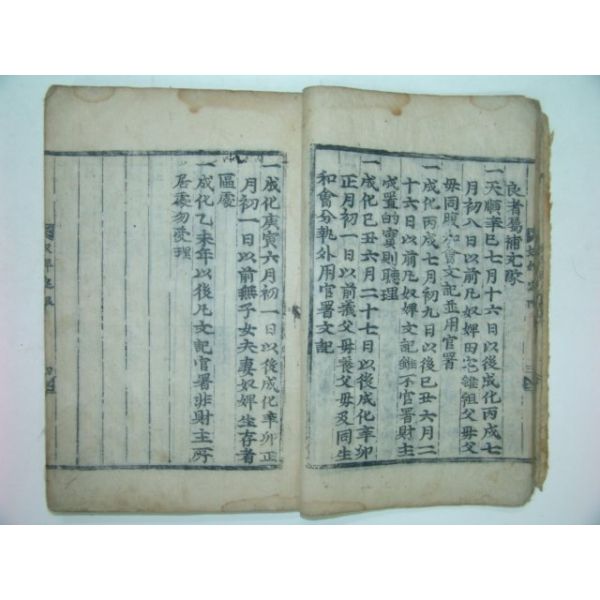 良者屬補充隊
一天順辛巳七月十六日以後成化丙戌七
月初八日以前凡奴婢田宅雖祖父母父
母同腹和會文記並用官署
一成化丙戌七月初九日以後己丑六月二
十六日以前凡奴婢文記雖不官署財主
成置的實則聽理
一成化己丑六月二十七日以後成化辛卯
正月初一日以前義父母養父母及同生
和會分執外用官署文記
一成化庚寅六月初一日以後成化辛卯正
月初一日以前無子女夫妻奴婢生存者
區處
一成化乙未年以後凡文記官署非財主所
居處勿受理